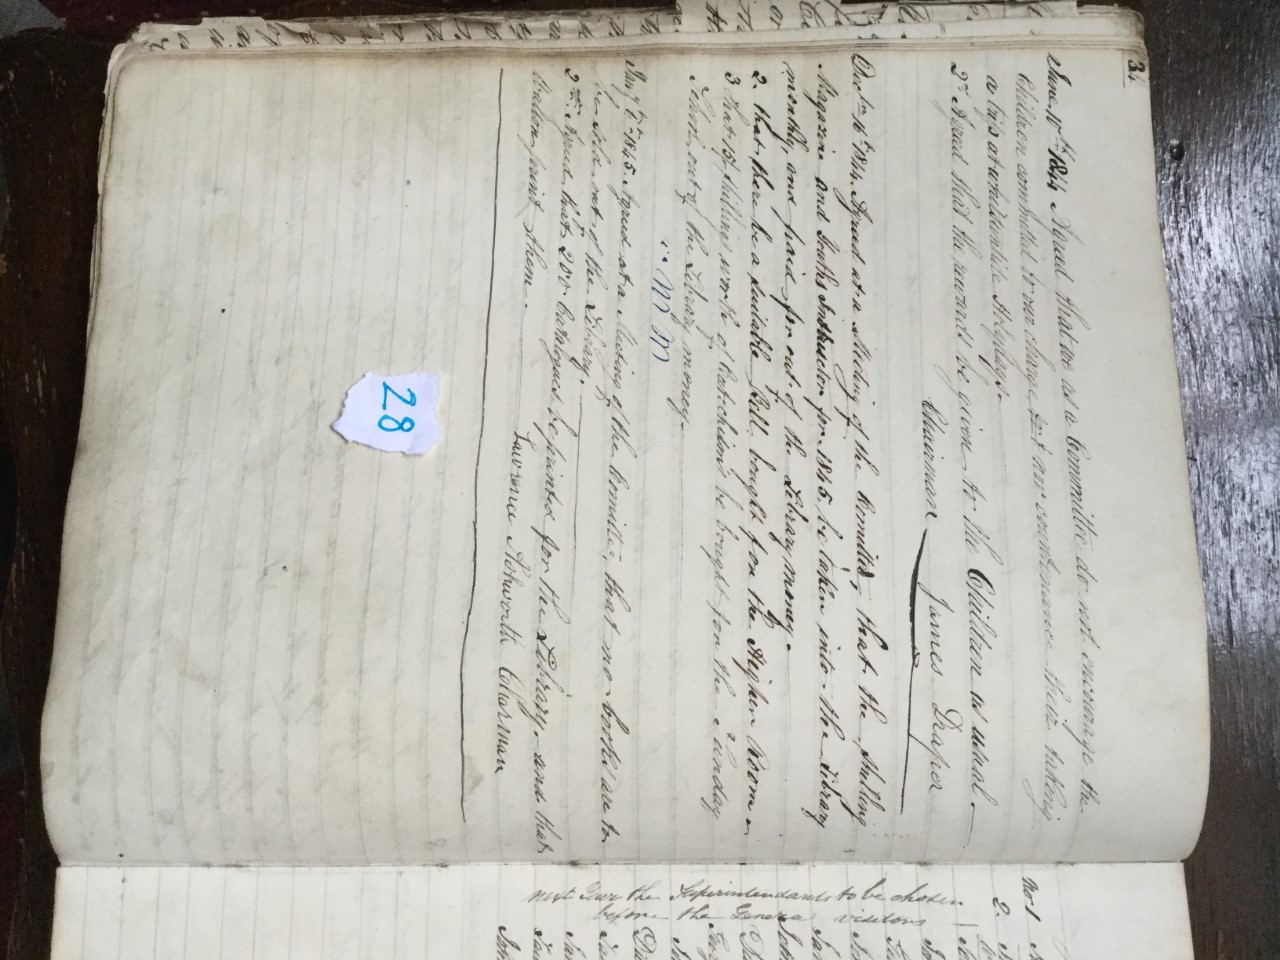 34
June 10th 1844 Agreed that we as a Committee do not encourage the
Children committed to our charge nor countenance their taking
a trip at whitsuntide Holydays.
2nd Agreed that the rewards be given to the Children as usual.
Chairman James Draper
Decbr 16th 1844. Agreed at a Meeting of the Comittee, that the Shilling
Magazine and Youths Instructor for 1845, be taken into the Library
monthly, and paid for out of the Library money.
2. that there be a suitable Bell bought for the Higher Room.
3 That 15/ shillings worth of Catechisms be bought for the Sunday
School, out of the Library money.
M M
Jany 1845. Agreed at a Meeting of the Comittee, that no books are to
be sold out of the Library.
2nd. Agreed that 200 Catalogues be printed for the Library. and that
Walton print them.
Lawrence Ashworth Charman
28
No 1
2.